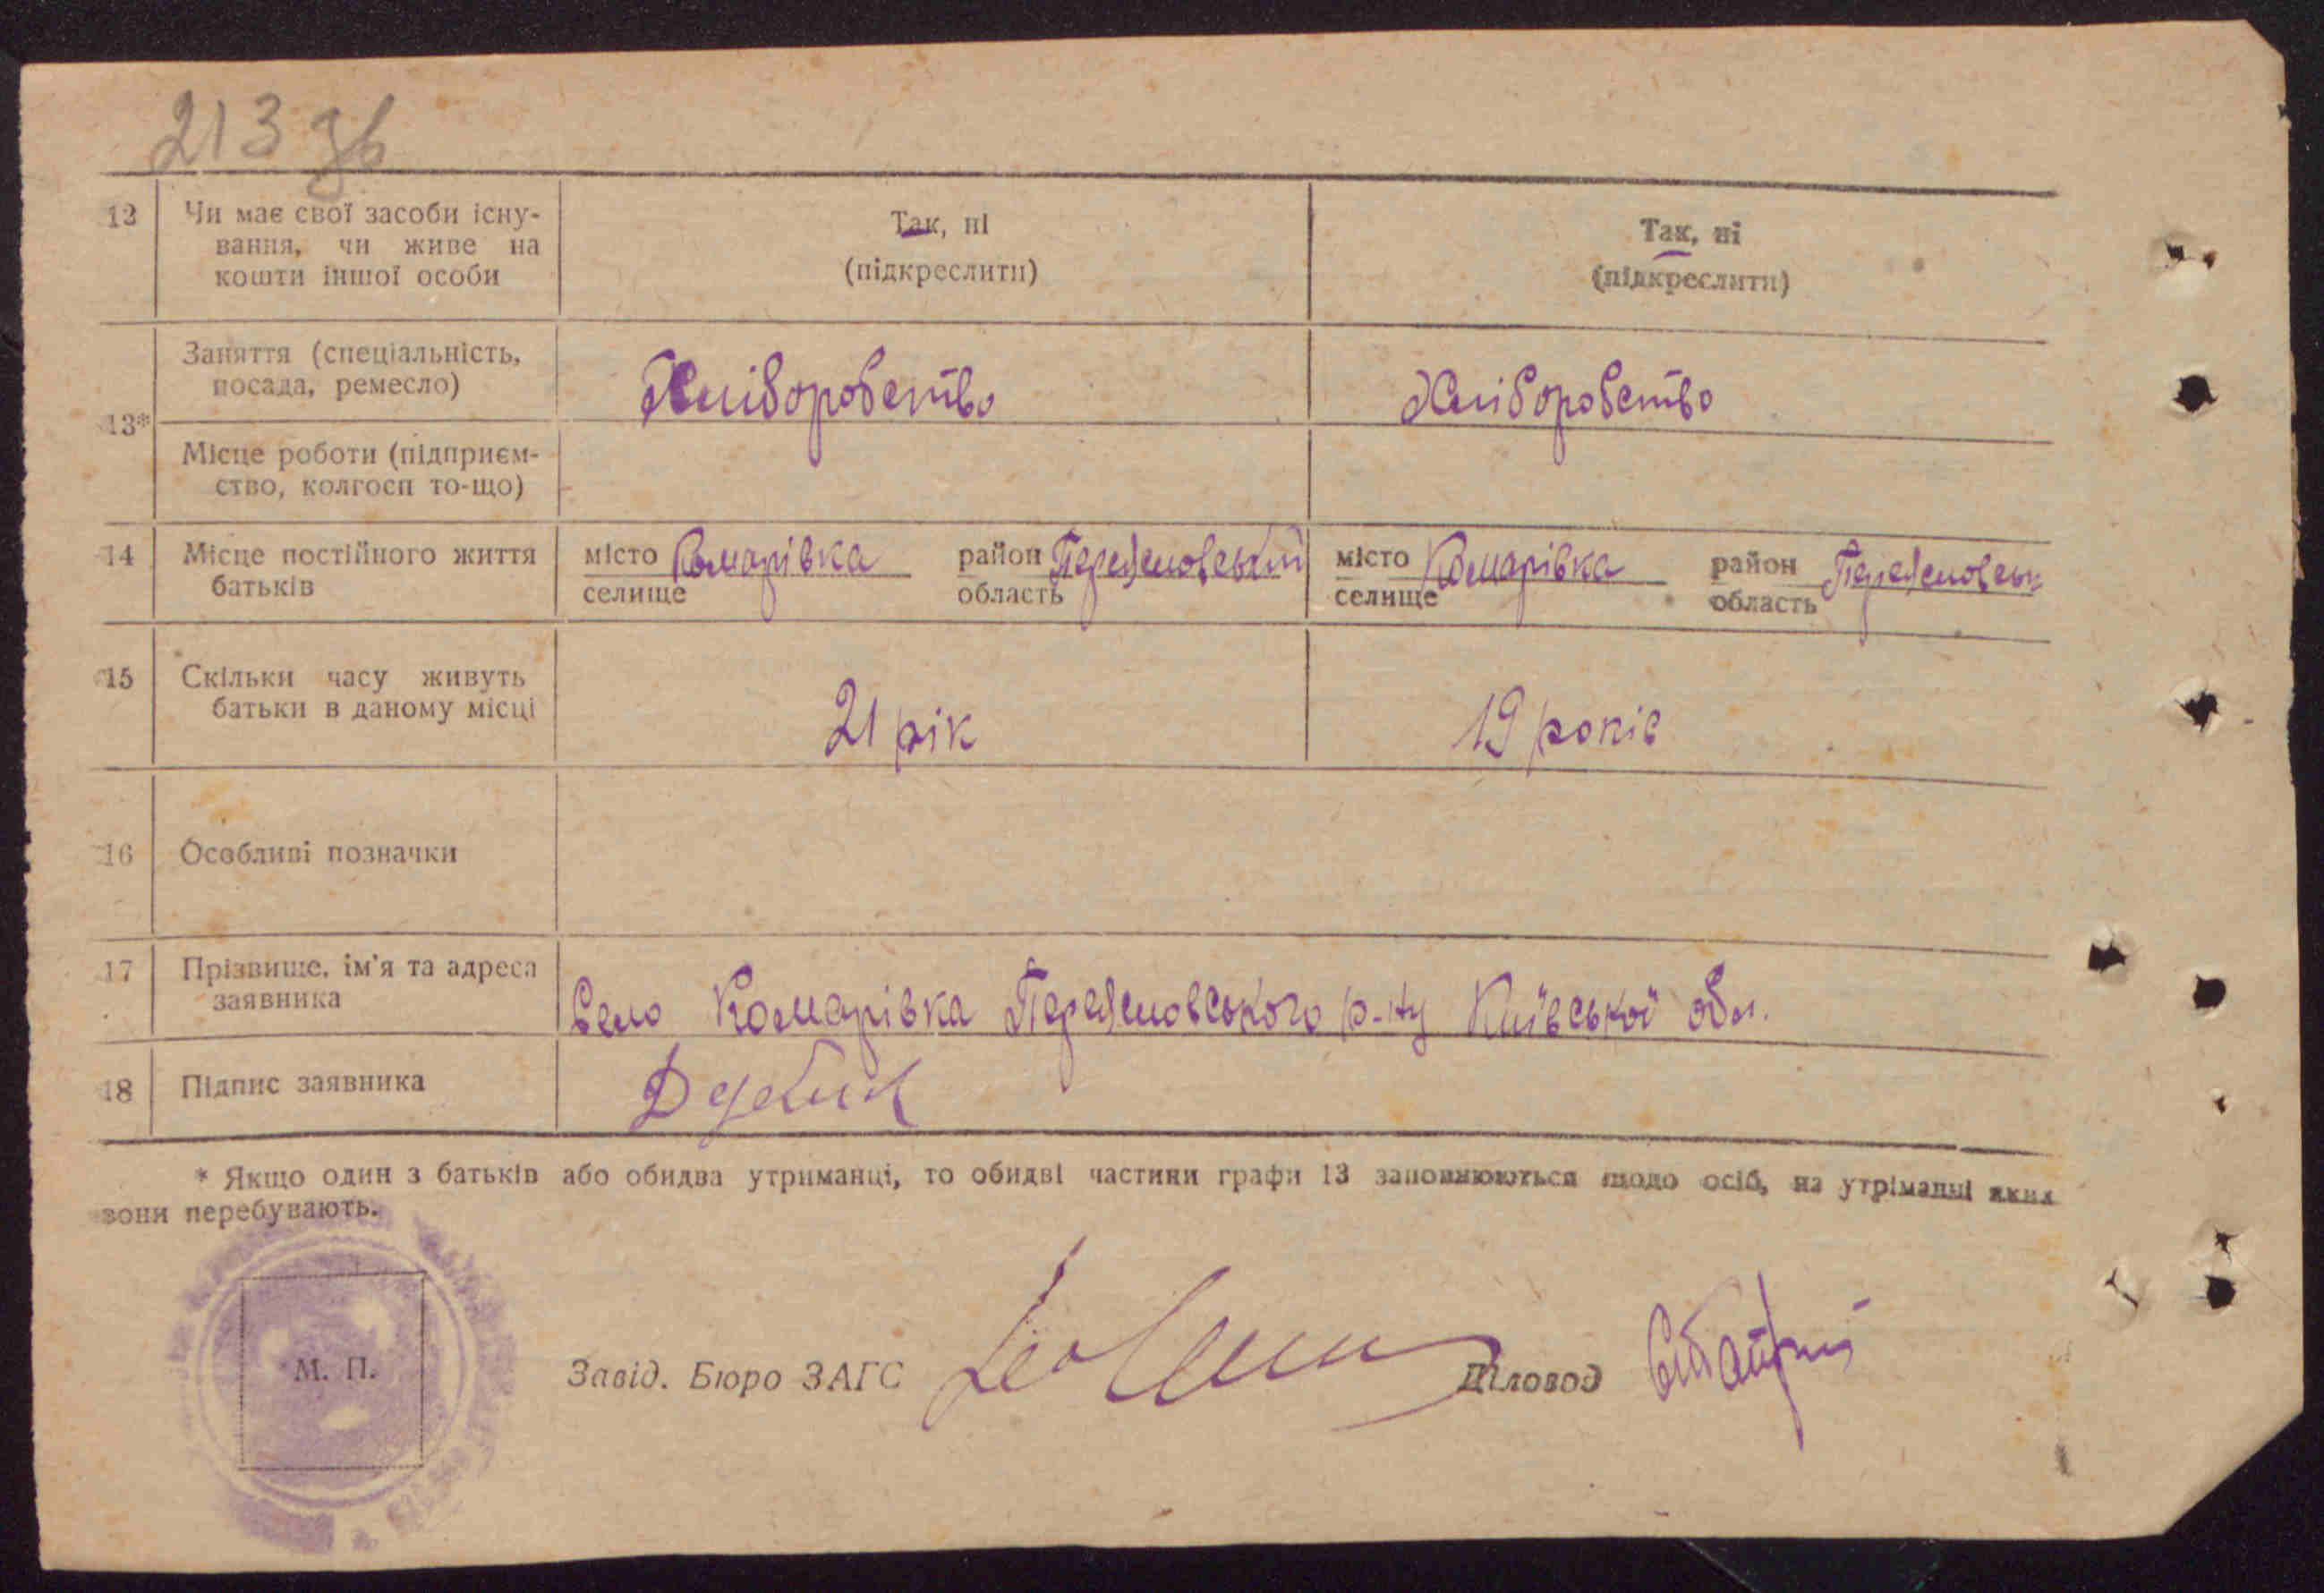 213 зв
12 Чи має свої засоби існу- Так, ні Так, ні
вання, чи живе на (підкреслити) (підкреслити)
кошти іншої особи
Заняття (спеціальність,
посада, ремесло) Хліборобство Хліборобство
13*
Місце роботи (підприєм-
ство, колгосп то-що)
14 Місце постійного життя місто Комарівка район місто Комарівка район
батьків селище область селище область
15 Скільки часу живуть
батьки в даному місці 21 рік 19 років
16 Особливі позначки
17 Прізвище, ім'я та адреса
заявника Село Комарівка р-ну Київської обл.
18 Підпис заявника
* Якщо один з батьків або обидва утриманці, то обидві частини графи 13 заповнюються щодо осіб, на утріманні яких
вони перебувають.
М. П. Завід. Бюро ЗАГС Діловод